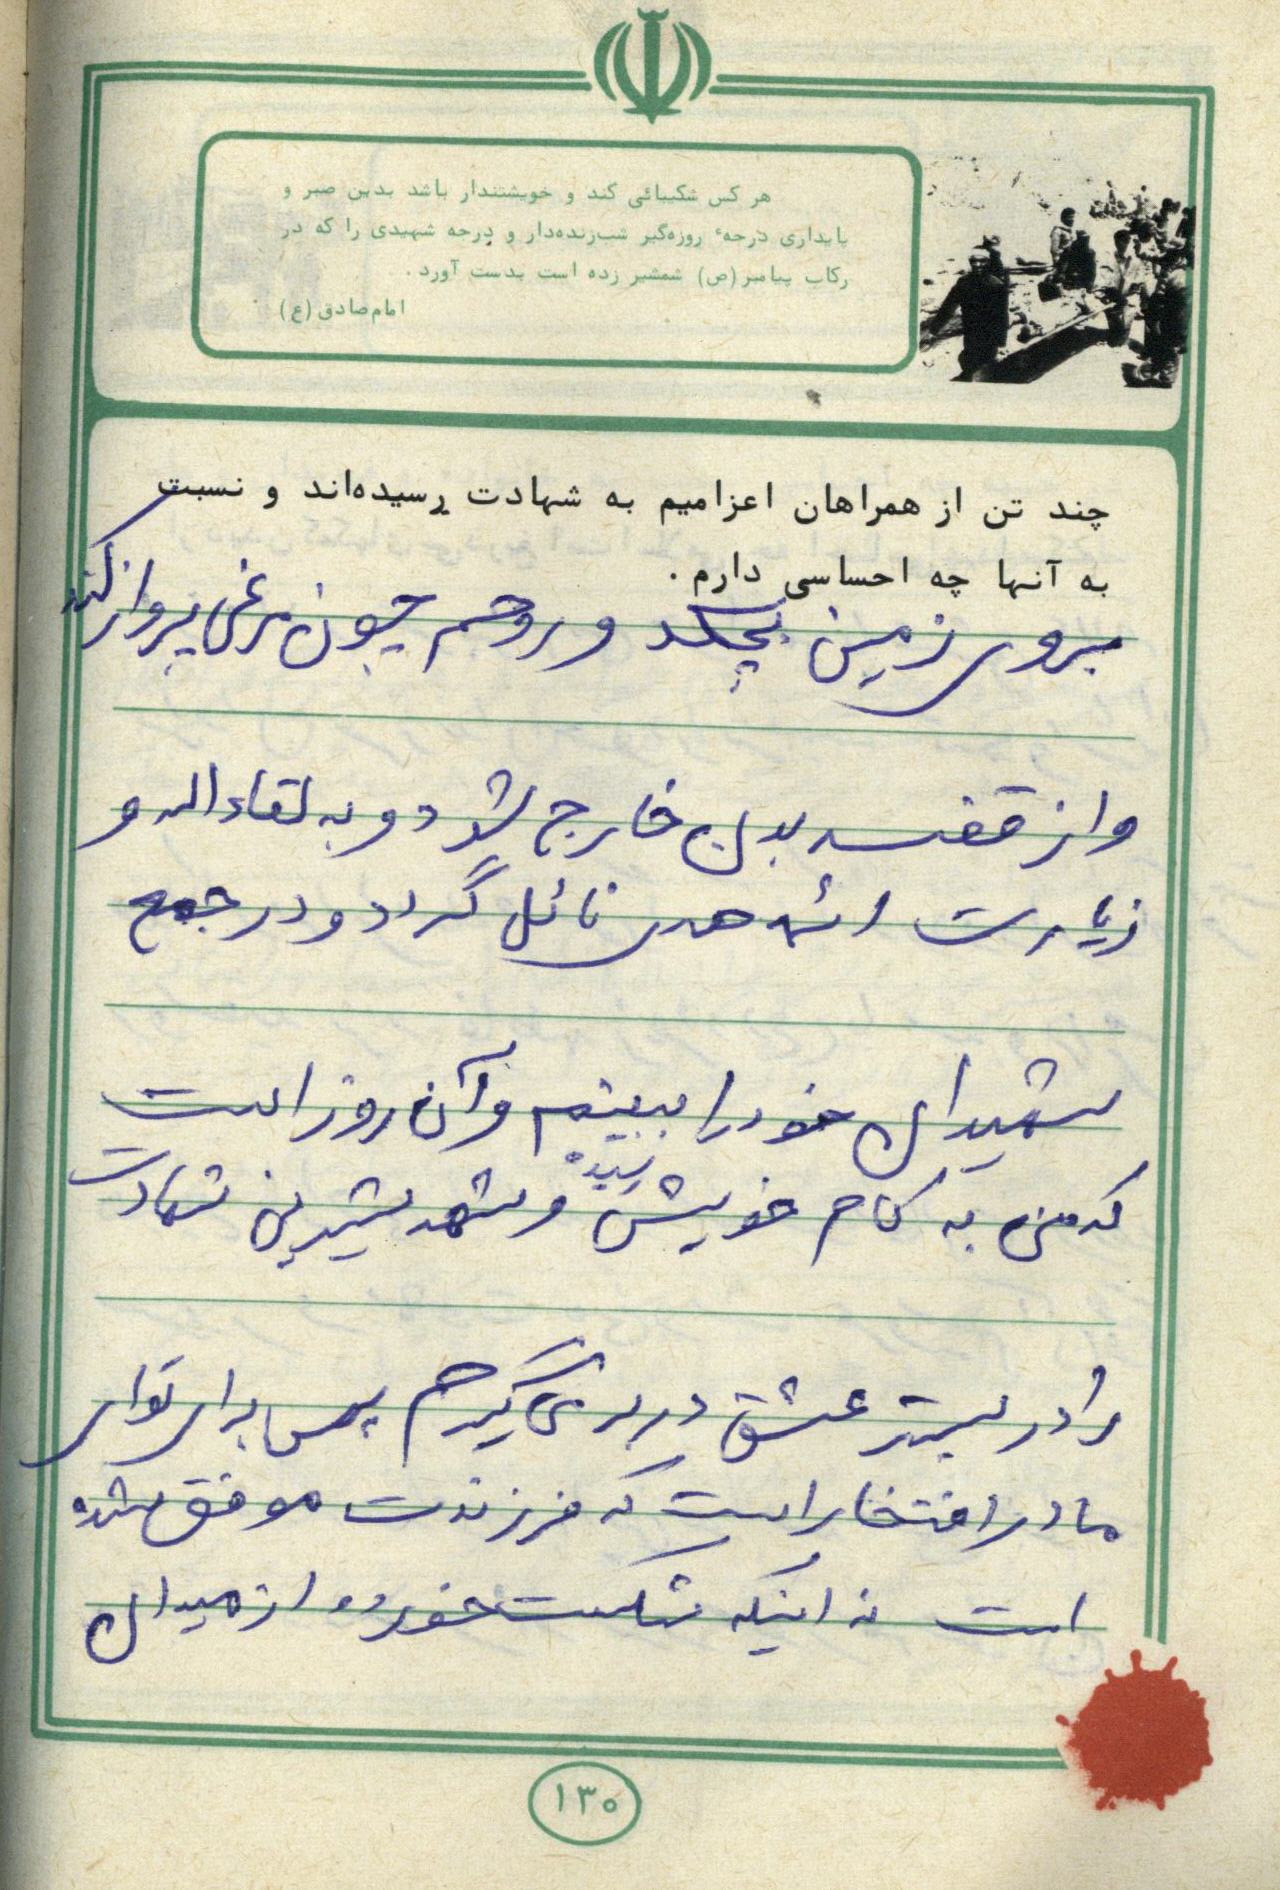 هر کس شکیبائی کند و خویشتندار باشد بدین صبر و
پایداری درجهٔ روزه‌گیر شب‌زنده‌دار و درجه شهیدی را که در
رکاب پیامبر (ص) شمشیر زده است بدست آورد .
امام صادق (ع)
چند تن از همراهان اعزامیم به شهادت رسیده‌اند و نسبت
به آنها چه احساسی دارم .
بروی زمین بچکد و روحم چون مرغی پرواز کند
و از قفسه بدن خارج شود و به لقاء الله و
زیارت ائمه هدی نائل گردد و در جمع
شهیدان خود را ببینم و آن روز است
که من به کام خویش رسیده و شهد شیرین شهادت
را در بستر عشق در بر می‌گیرم پس برای تو ای
مادر افتخار است که فرزندت موفق شده
است نه اینکه شکست خورده از میدان
۱۳۰